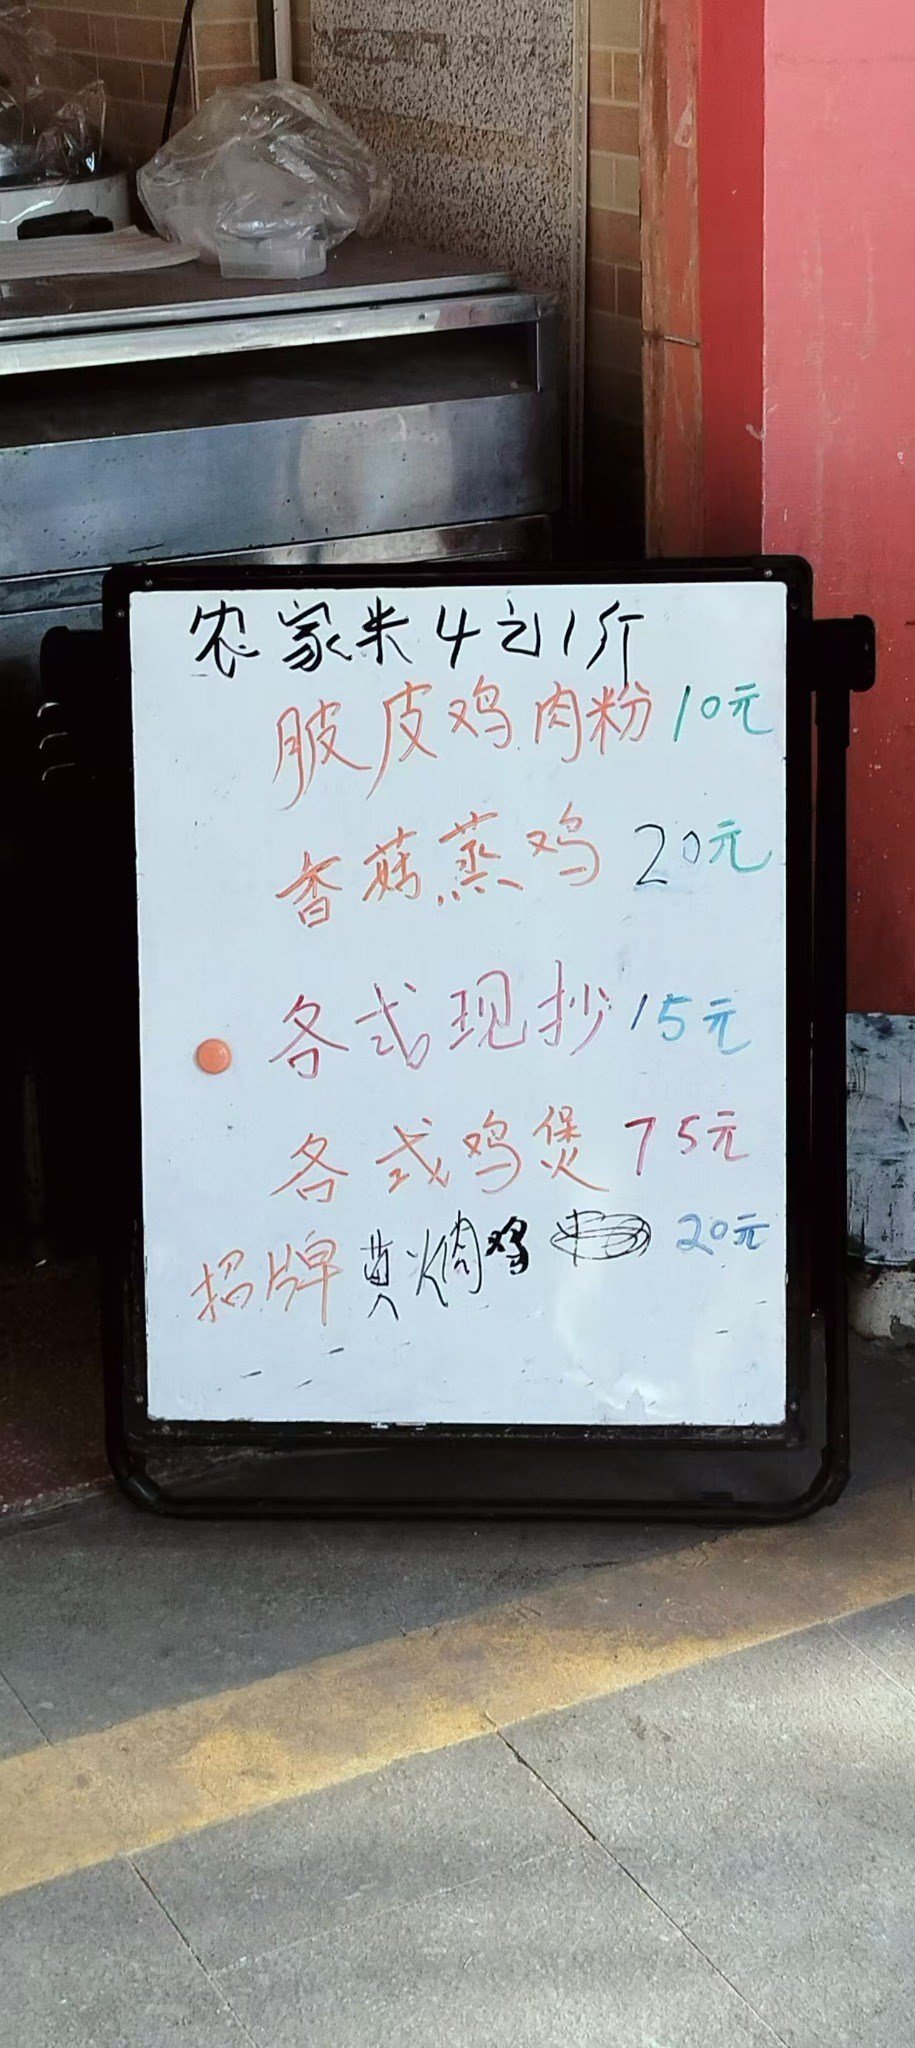 农家米4元1斤
脆皮鸡肉粉10元
香菇蒸鸡20元
各式现抄15元
各式鸡煲75元
招牌黄焖鸡 20元